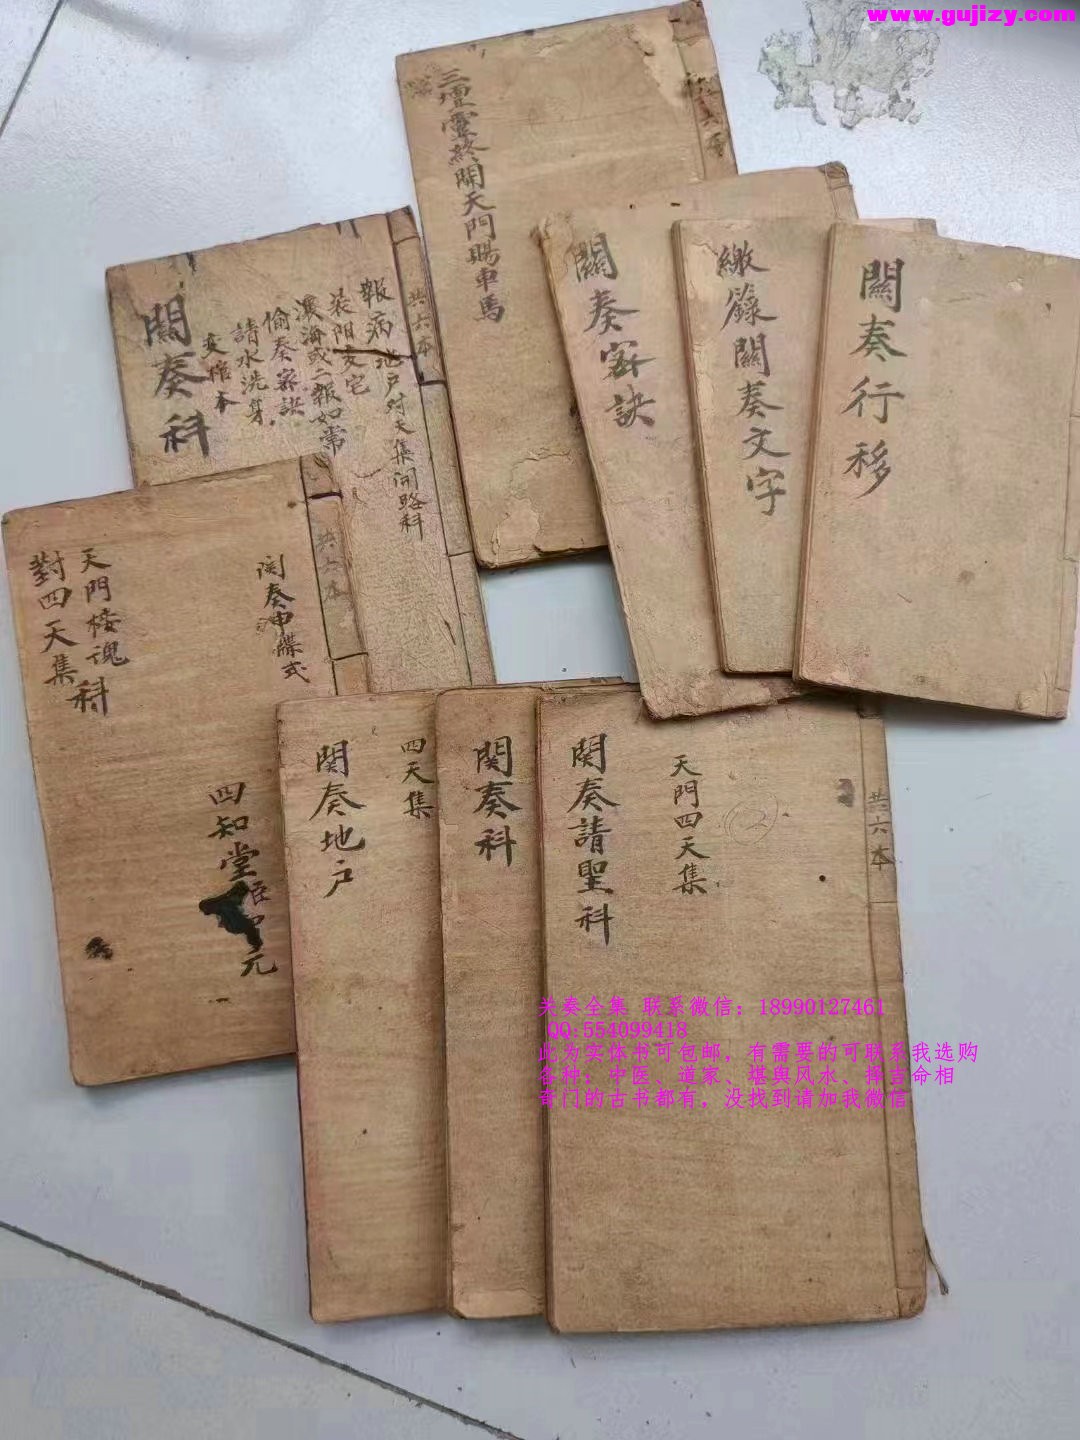 www.gujizy.com
三壇靈終開天門賜車馬
共六本
關奏科
報病地户对天集開路科
装阳变宅
瀼海或二報如常
偷奏宻訣
請水洗身
共六本
關奏宻訣
繳籙關奏文字
關奏行移
共六本
関奏申牒式
天門接魂科
對四天集
四知堂
元
四天集
関奏地户
関奏科
共六本
天門四天集
2
関奏請聖科
关奏全集 联系微信：18990127461
QQ:554099418
此为实体书可包邮，有需要的可联系我选购
各种：中医、道家、堪舆风水、择吉命相
奇门的古书都有，没找到请加我微信